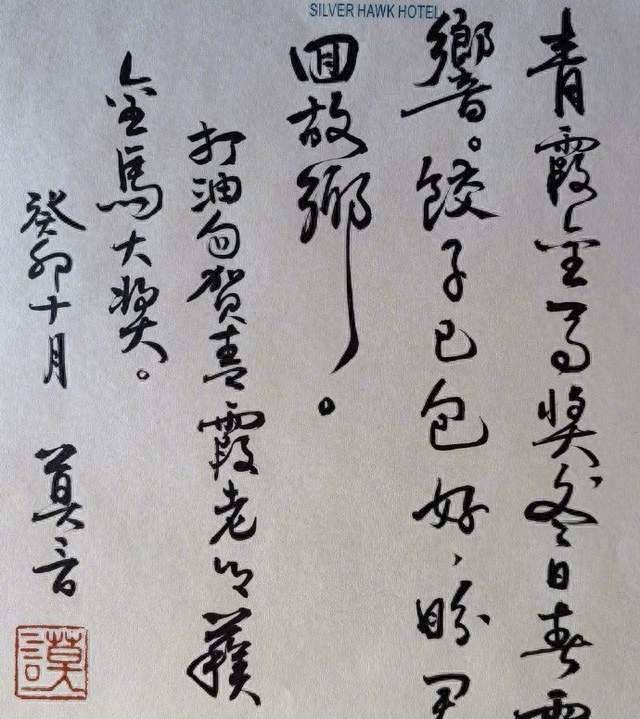 SILVER HAWK HOTEL
青霞金马獎冬日春
響。餃子已包好、盼
囬故鄉。
打油句賀青霞老师獲
金馬大獎。
癸卯十月 莫言
謨